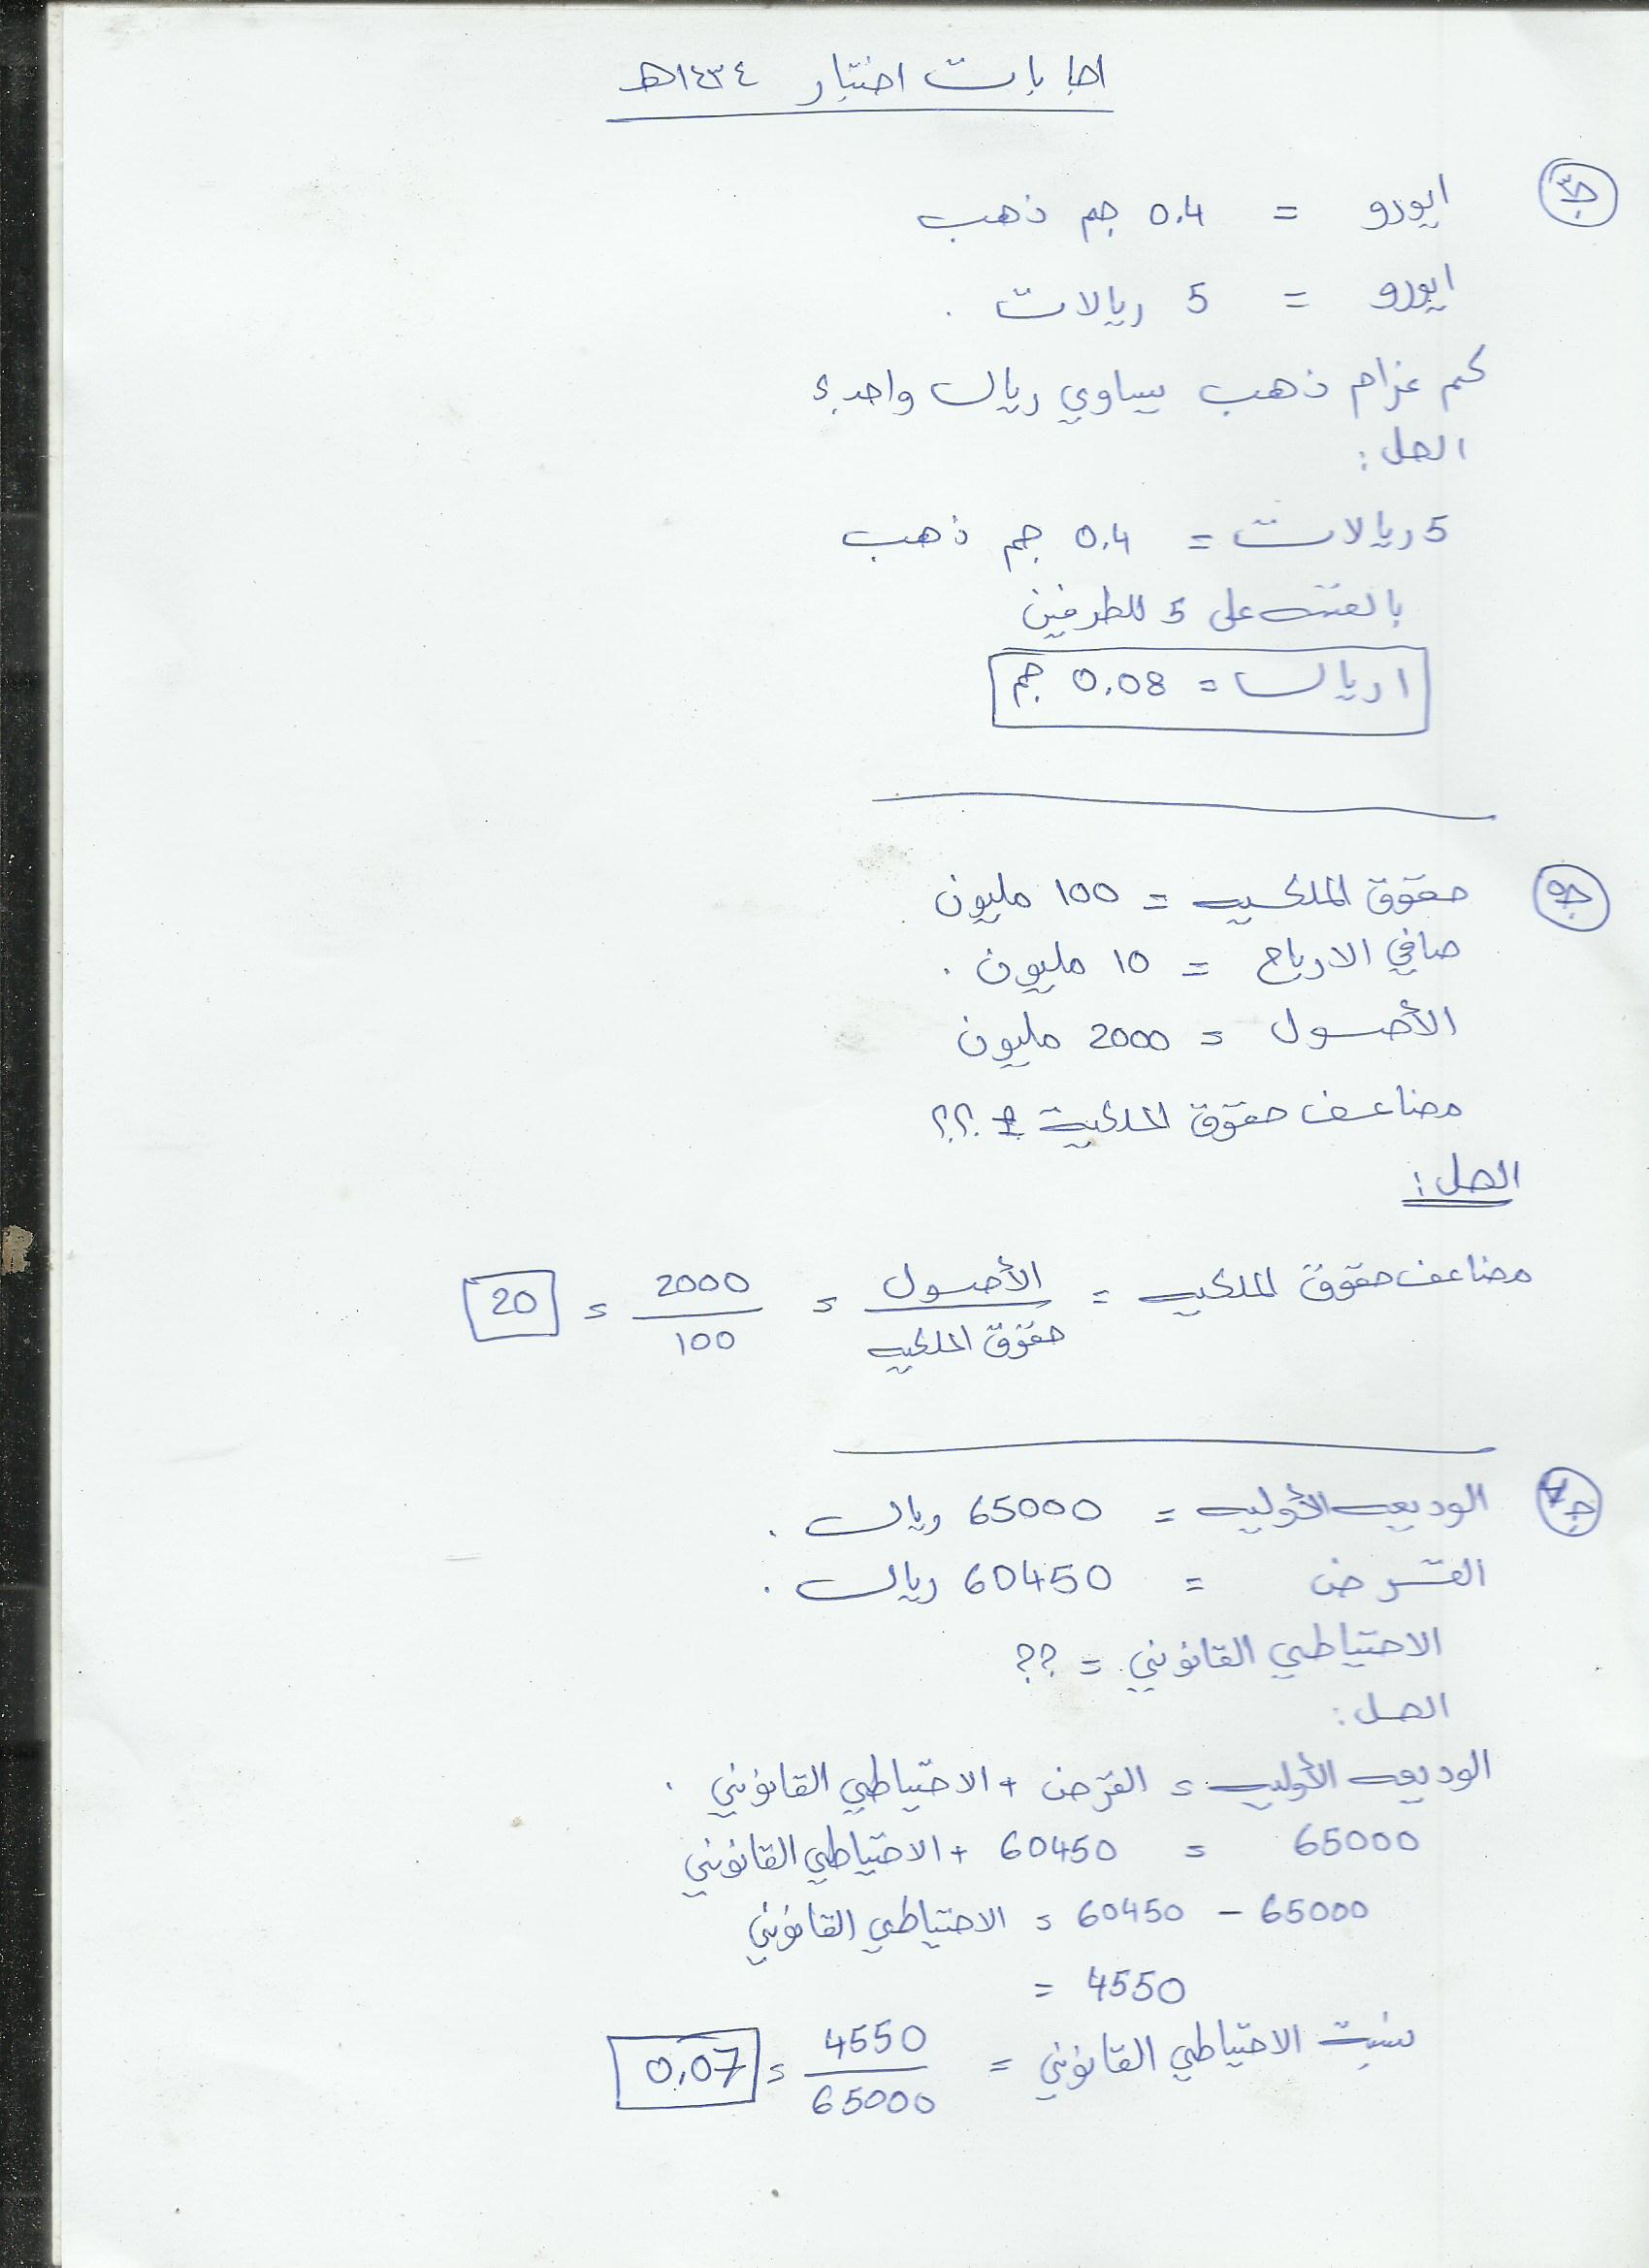 اجابات اختبار ١٤٣٤هـ
ج٣
ايورو = 0.4 جم ذهب
ايورو = 5 ريالات .
كم غرام ذهب يساوي ريال واحد؟
الحل :
5 ريالات = 0.4 جم ذهب
بالقسمه على 5 للطرفين
١ ريال = 0.08 جم
ج٥
حقوق الملكيه = 100 مليون
صافي الارباح = 10 مليون .
الأصول = 2000 مليون
مضاعف حقوق الملكية = ؟؟
الحل :
مضاعف حقوق الملكيه = الأصول / حقوق الملكيه = 2000 / 100 = 20
الوديعه الأوليه = 65000 ريال .
القرض = 60450 ريال .
الاحتياطي القانوني = ??
الحل :
الوديعه الأوليه = القرض + الاحتياطي القانوني .
65000 = 60450 + الاحتياطي القانوني
65000 – 60450 = الاحتياطي القانوني
4550 =
نسبة الاحتياطي القانوني = 4550 / 65000 = 0.07